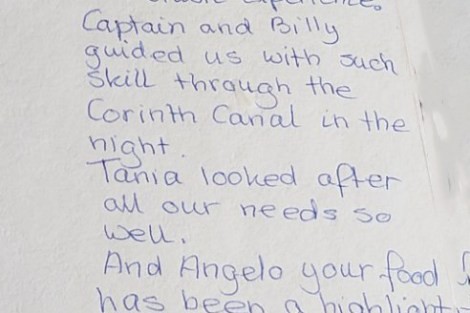 Captain and Billy
guided us with such
skill through the
Corinth Canal in the
night.
Tania looked after
all our needs so
well.
And Angelo your food
has been a highlight